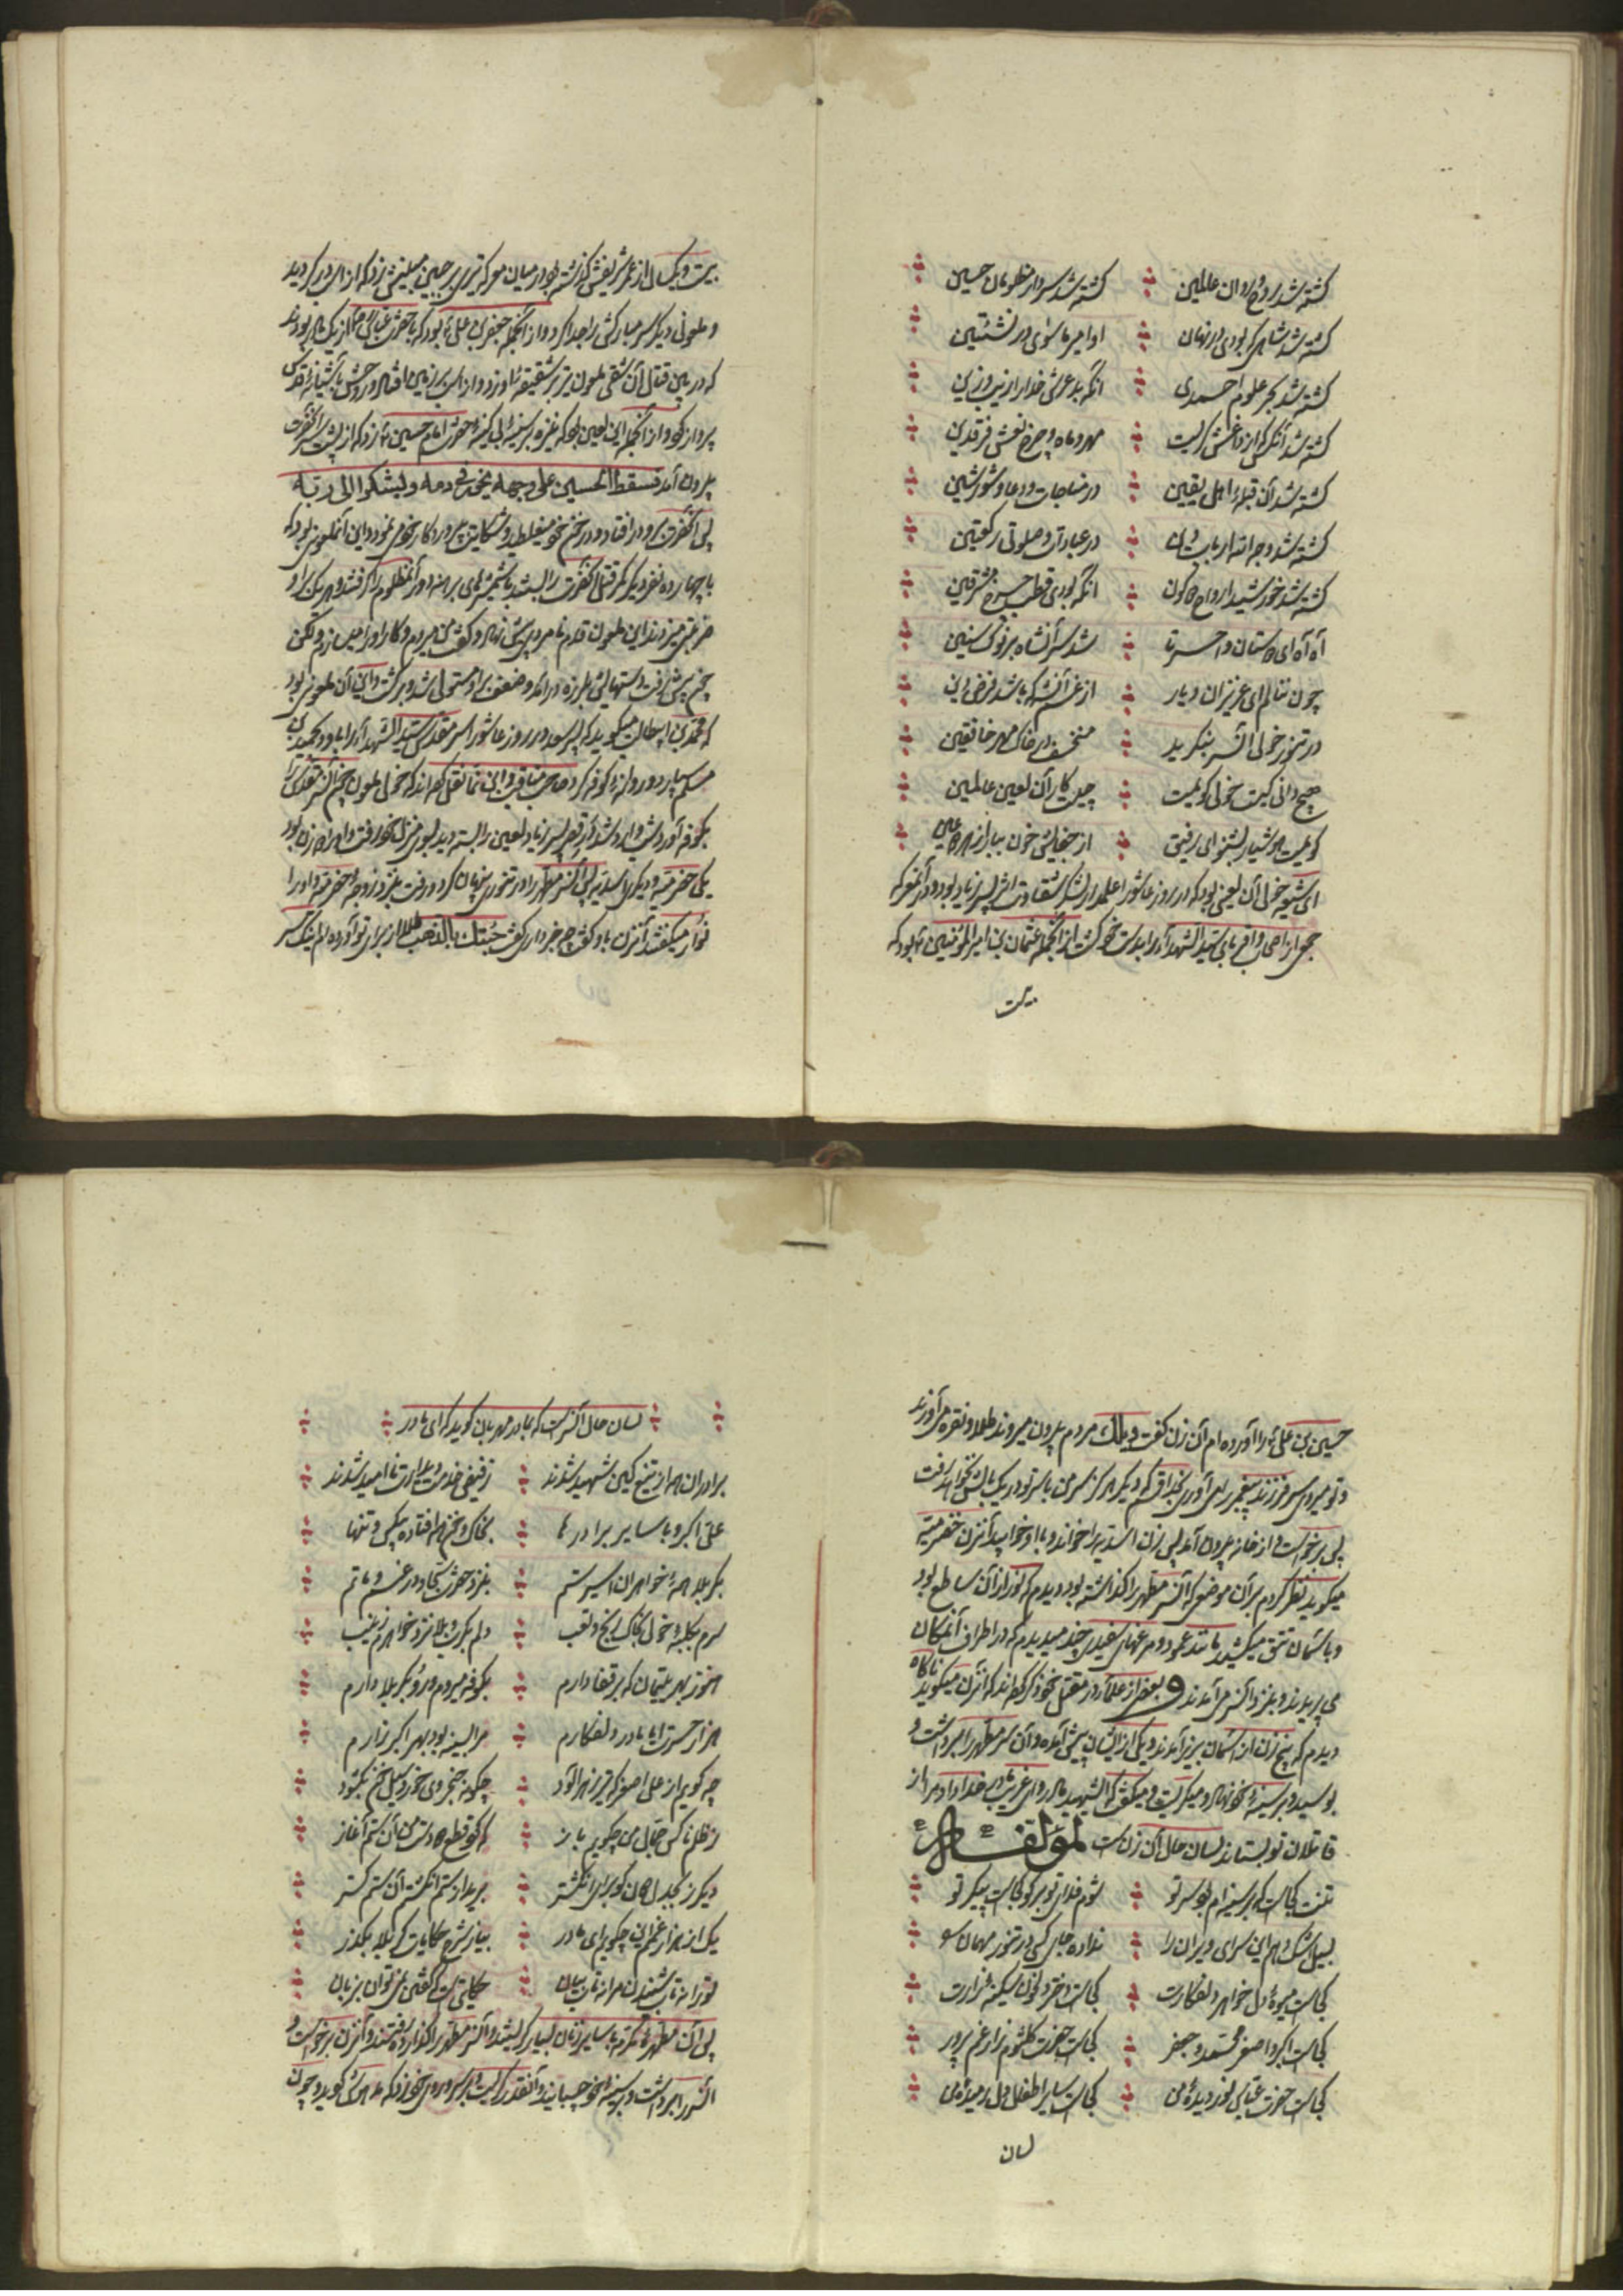 کشته شد روح روان عالمین کشته شد سردار مظلومان حسین
کشته شد شاهی که بودی در نهان او امیر ماسوی در نشئتین
کشته شد بحر علوم احمدی آنکه بد عرش خدا را زیب و زین
کشته شد آنکس که از داغش گریست مهر و ماه و چرخ نعش فرقدین
کشته شد آن قبلهٔ اهل یقین در مناجات و دعا و شور شین
کشته شد وجه الله ارباب در عبادت و صلوتی رکعتین
کشته شد خورشید ارواح کون آنکه بودی قطب چرخ مشرقین
آه آه ای دوستان واحسرتا شد سر آنشاه بر نوک سنین
چون ننالم ای عزیزان دیار از غم آنشه که باشد فرض عین
در تنور خولی آنسر بنگرید منخسف در خاک مهر خافقین
هیچ دانی کیست خولی کو کیست چیست کار آن لعین عالمین
کو کیست هوشیار بشنو ای رفیق از جفایش خون ببار از هر دو عین
ای شیعه خولی آن لعینی بود که در روز عاشورا علمدار لشکر شقاوت اثر پسر زیاد بود و در آنمعرکه
جمعی از اصحاب و اقربای سید الشهدا را بدست خود کشت از آنجمله عثمان بن امیر المؤمنین بود که
بیست
بیست و یکسال از عمر شریفش گذشته بود در میان معرکه تیری بر جبین مبینش زد که از اسب در گردید
و ملعونی دیگر سر مبارکش را جدا کرد و از آنجمله جعفر بن علی بود که با حضرت عباس از یک مادر بودند
که در عین قتال آن شقی ملعون تیر بر شقیقه او زد و از اسب بر زمین افتاد و روحش بآشیانهٔ قدس
پرواز کرد و از آنجمله این لعین بود که نیزه بر سینهٔ بی کینهٔ حضرت امام حسین زد که از پشت سر آنحضرت
بیرون آمد فسقط الحسین علی وجهه یخور فی دمه و لیشکوا الی ربه
پس آنحضرت برو در افتاد و در خون خود میغلطید و شکایت بپروردگار خود مینمود و این آنملعون بود که
با چهارده نفر دیگر کمر قتل آنحضرت را بستند با شمشیرهای برهنه دور آنمظلوم را گرفتند و هر یک بر او
ضربتی میزدند این ملعون قدم نامردی پیش نهاد و گفت من میروم و کار او را میسازم و لکن
چون پیش رفت دستهایش بلرزه در آمد و ضعف بر او مستولی شد و برگشت و این آن ملعونی بود
که محمد بن ابیطالب میگوید که پسر سعد در روز عاشورا سر مقدس سید الشهدا را باو و حمید بن
مسلم سپارد و روانهٔ کوفه کرد صاحب مناقب و ابن نما نقل کرده اند که خولی ملعون چون آنسر مقدس را
بکوفه آورد شب وارد شد در قصر پسر زیاد لعین را بسته دید بسوی منزل خود رفت و او را دو زن بود
یکی حضرمیه و دیگری اسدیه پس آنسر مطهر را در تنور پنهان کرد و رفت بنزد زوجه حضرمیه و او را
نوار میگفتند آنزن باو گفت چه خبر داری گفت جئتک بالذهب طلا از برای تو آورده ام اینک سر
حسین بن علی را آورده ام آن زن گفت ویلک مردم بیرون میروند طلا و نقره می آورند
و تو میروی سر فرزند پیغمبر را می آوری بخدا قسم که دیگر هرگز سر من با سر تو در یک بالش نخواهد رفت
پس برخواست و از خانه بیرون آمد پس زن اسدیه را خواند و با او خوابید آنزن حضرمیه
میگوید نظر کردم بر آن موضعی که آنسر مطهر را گذاشته بود دیدم که نور از آن ساطع بود
و باسمان تتق میکشید مانند عمود و مرغهای سفید چند میدیدم که در اطراف آنمکان
می پریدند و بنزد آنسر می آمدند و بعضی از علما در مقتل خود ذکر کرده اند که آنزن میگوید ناگاه
دیدم که پنج زن از آسمان بزیر آمدند و یکی از ایشان پیش آمده و آن سر مطهر را برداشت و
بوسید و بر سینهٔ خود نهاد و میگریست و میگفت ای شهید مادر وای غریب مادر خدا داد مرا از
قاتلان تو بستاند لسان حال آن زن است لمؤلفه
تنت کجاست که بر سینه ام بود سر تو شوم فدای تو بر گو کجاست پیکر تو
بسیل اشک دهم این سرای ویران را نداده جای کسی در تنور مهمان را
کجاست میوهٔ دل خواهر دلفکارت کجاست دختر دلخون سکینه زارت
کجاست اکبر و اصغر محمد و جعفر کجاست حضرت کلثوم زار غم پرور
کجاست حضرت عباس نور دیدهٔ من کجاست سایر اطفال دل رمیدهٔ من
لسان
لسان حال آنسر است که بمادر مهربان گوید که ای مادر
برادران همه از تیغ کین شهید شدند ز فیض خدمت دیدارت ناامید شدند
علی اکبر و با سایر برادرها بخاک و خون همه افتاده بیکس و تنها
بکربلا همهٔ خواهران اسیر ستم بنزد حضرت سجاد در غم و ماتم
سرم بکلبهٔ خولی بخاک رنج و تعب دلم بکرببلا نزد خواهرم زینب
هنوز بهر یتیمان که بر قفا دارم بکوفه میروم و رو بکربلا دارم
هزار حسرت ایا مادر دلفکارم مرا بسینه بود بهر اکبر زارم
چه گویم از علی اصغر که تیر زهرآلود چگونه حنجر وی خورد و سیل خون بگشود
ز ظلم ناکس جمال من چگویم باز که کرد قطع دو دست من آن ستم آغاز
دیگر ز بجدل دون کو برای انگشتر برید از ستم انگشتم آن ستم گستر
یک از هزار غم این چگویم ای مادر بیا ز شرح حکایات کربلا بگذر
تو را نه تاب شنیدن مرا نه تاب بیان حکایتیست که گفتن نمی توان بزبان
پس آن مطهره مکرمه با سایر زنان بسیار گریستند و آنسر مطهر را گذارده رفتند و آنزن برخواست و
آنسر را برداشت و بر سینهٔ خود چسبانید و آنقدر گریست و بر سر و روی خود زد که مدهوش گردید و چون